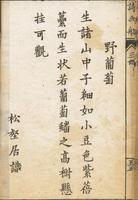 野葡萄
生諸山中子細如小豆色紫蓓
蕾而生狀若葡萄繡之高樹懸
挂可觀
松壑居譜